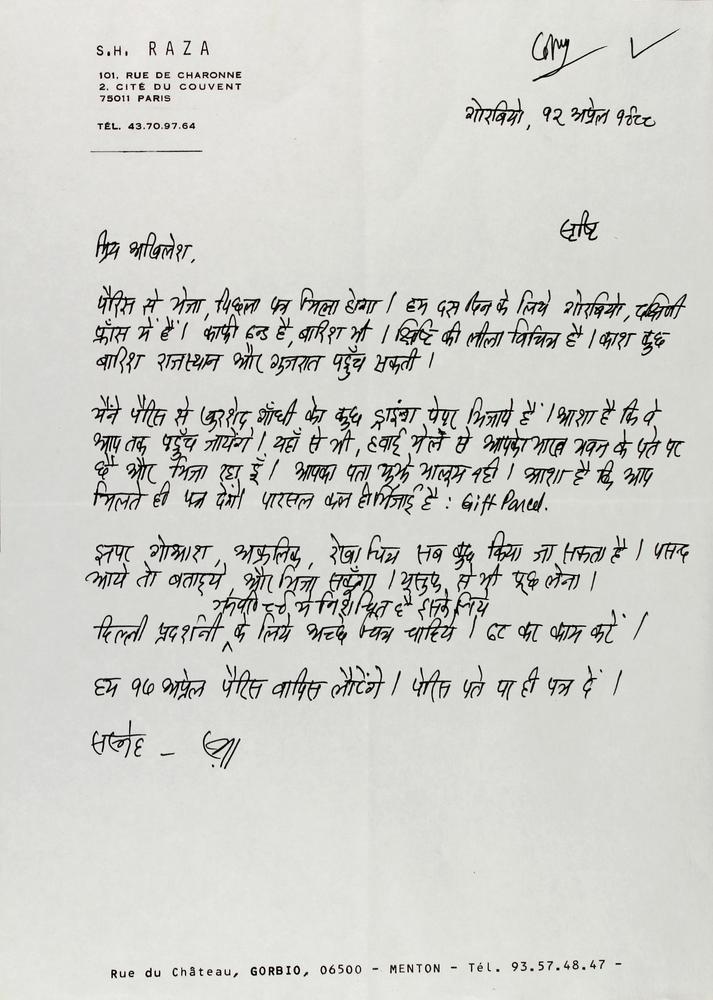 S.H. RAZA
101, RUE DE CHARONNE
2, CITÉ DU COUVENT
75011 PARIS
TÉL. 43.70.97.64
Copy
गोरबियो, १२ अप्रेल १९८८
सृष्टि
प्रिय अखिलेश,
पैरिस से भेजा, पिछला पत्र मिला होगा । हम दस दिन के लिये गोरबियो, दक्षिणी
फ्राँस में हैं । काफी ठन्ड है, बारिश भी । की लीला विचित्र है । काश कुछ
बारिश राजस्थान और गुजरात पहुँच सकती ।
मैंने पैरिस से खुरशेद गाँधी को कुछ ड्राइंग पेपर भिजाये हैं । आशा है कि वे
आप तक पहुँच जायेंगे । यहाँ से भी, हवाई मेल से आपको भारत भवन के पते पर
छै और भिजा रहा हूँ । आपका पता मुझे मालूम नहीं । आशा है कि आप
मिलते ही पत्र देंगे । पारसल कल ही भिजाई है : Gift Parcel.
इनपर गोआश, अक्रलिक, रेखा चित्र सब कुछ किया जा सकता है । पसन्द
आये तो बताइये और भिजा सकूँगा । युसुफ से भी पूछ लेना ।
जनवरी ८९ में निश्चित है इसके लिये
दिल्ली प्रदर्शनी के लिये अच्छे चित्र चाहिये । डट कर काम करें ।
हम १७ अप्रेल पैरिस वापिस लौटेंगे । पेरिस पते पर ही पत्र दें ।
सस्नेह –
Rue du Château, GORBIO, 06500 - MENTON - Tél. 93.57.48.47 -